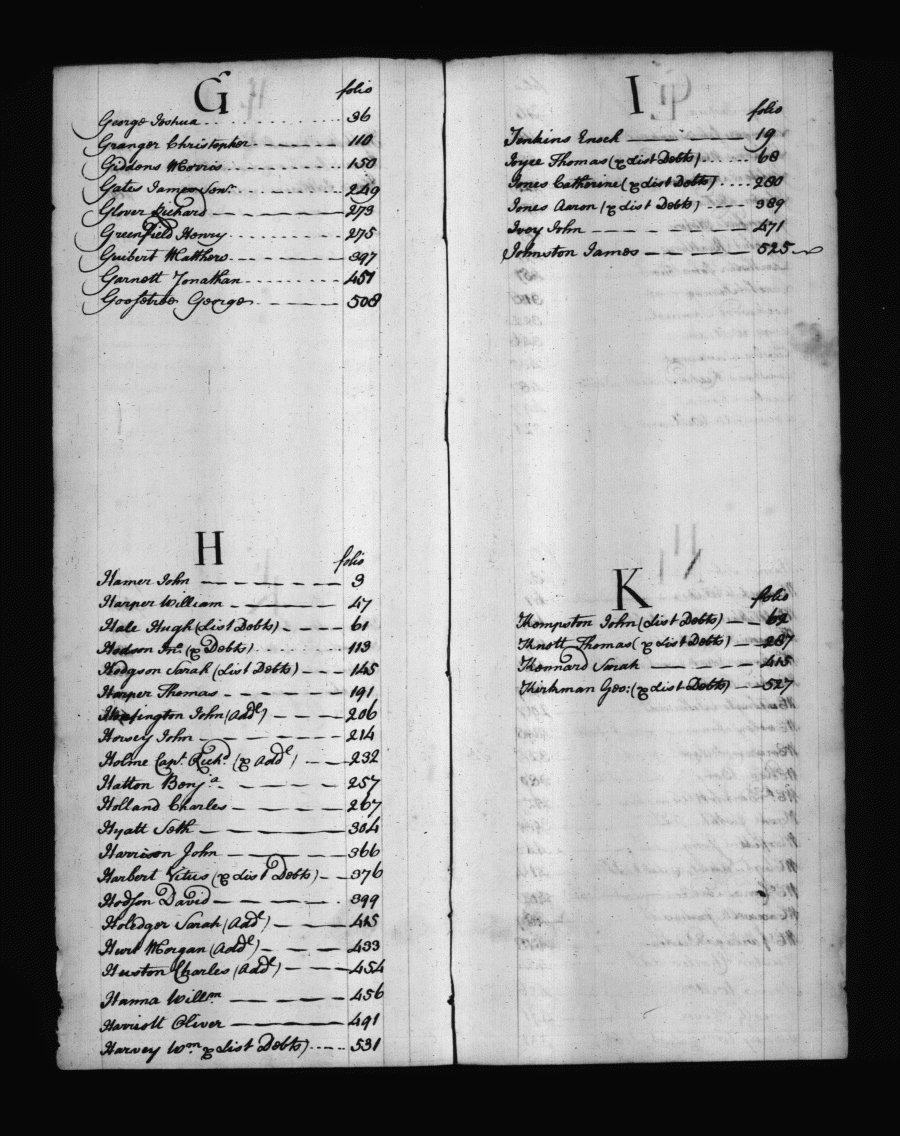 G
folio
George Joshua 36
Granger Christopher 110
Giddens Morris 150
Gates James Senr. 249
Glover Richard 273
Greenfield Henry 275
Guibert Matthew 397
Garnett Jonathan 451
Goosetree George 508
H
folio
Hamer John 3
Harper William 47
Hale Hugh (list Debts) 61
Hodson Jno. (& Debts) 113
Hodgson Sarah (list Debts) 145
Harper Thomas 191
John (Addl) 206
Horsey John 214
Holme Capt. Richd. (& Addl) 232
Hatton Benja. 257
Holland Charles 267
Hyatt Seth 304
Harrison John 366
Harbert Vitus (& list Debts) 376
Hodson David 399
Holedger Sarah (Addl) 415
Hurt Morgan (Addl) 433
Huston Charles (Addl) 454
Hanna Willm 456
Harriott Oliver 491
Harvey Wm & list Debts) 531
I
folio
Jenkins Enoch 19
Joyce Thomas (& list Debts) 68
Jones Catherine (& list Debts) 280
Jones Aaron (& list Debts) 389
Ivey John 471
Johnston James 525
K
folio
Kempston John (list Debts) 62
Knott Thomas (& list Debts) 287
Kennard Sarah 415
Kirkman Geo: (& list Debts) 527